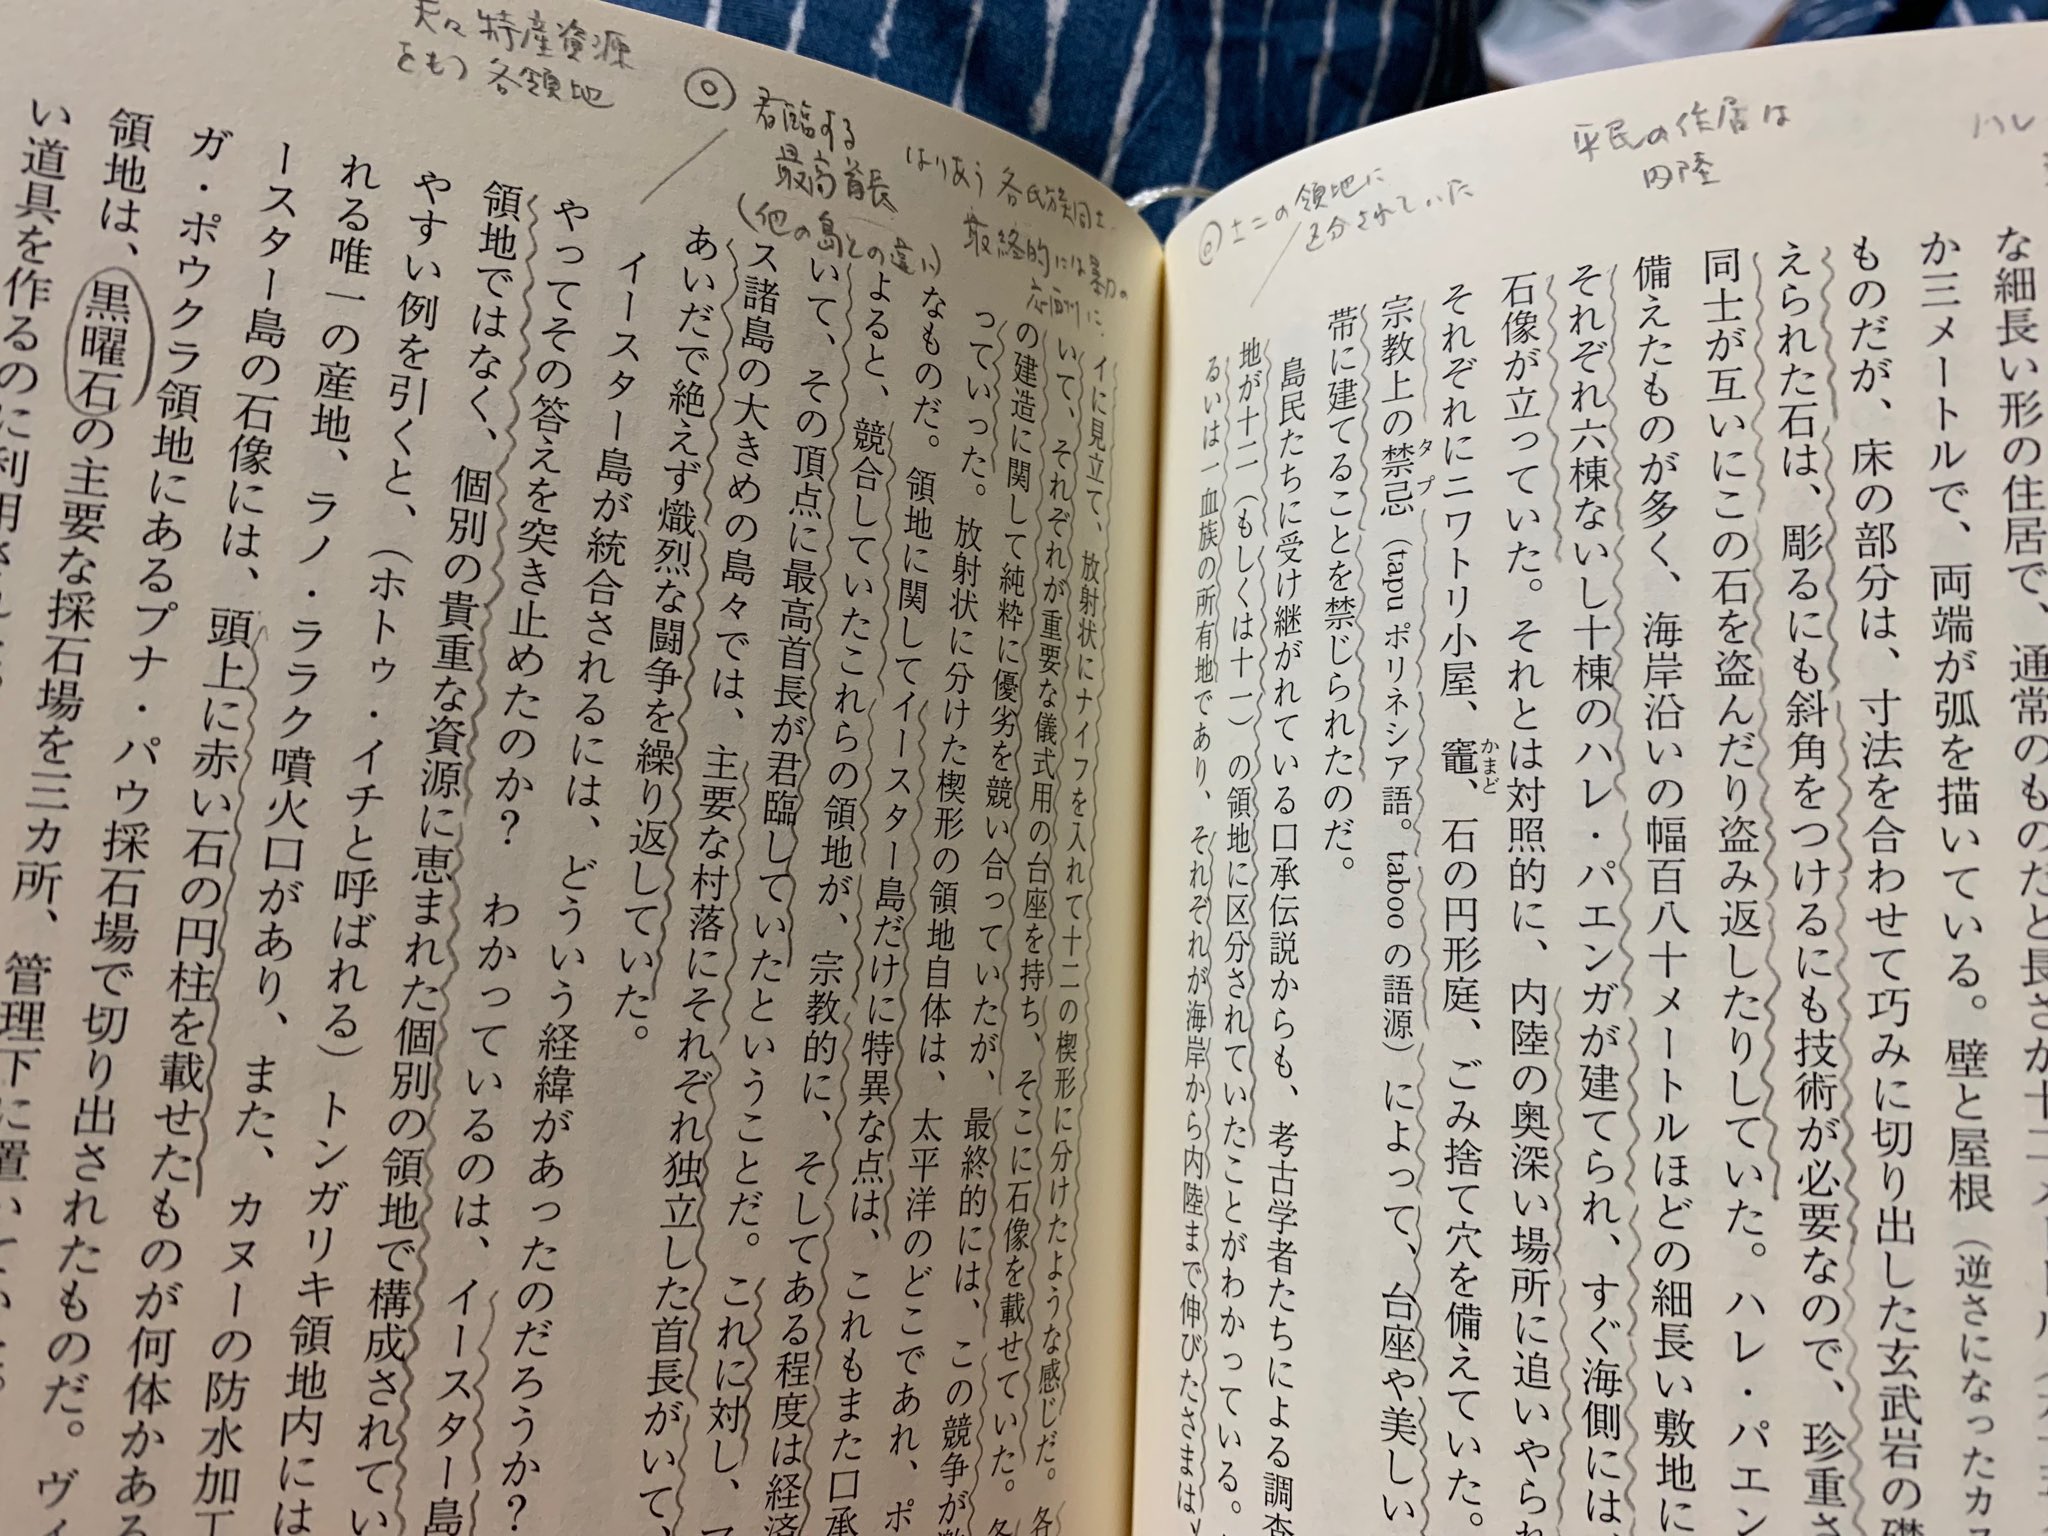 平民の住居は
内陸
◎十二の領地に
区分されていた
な細長い形の住居で、通常のものだと長さが十二メートル
か三メートルで、両端が弧を描いている。壁と屋根（逆さになったカ
ものだが、床の部分は、寸法を合わせて巧みに切り出した玄武岩の礎
えられた石は、彫るにも斜角をつけるにも技術が必要なので、珍重さ
同士が互いにこの石を盗んだり盗み返したりしていた。ハレ・パエン
備えたものが多く、海岸沿いの幅百八十メートルほどの細長い敷地に
それぞれ六棟ないし十棟のハレ・パエンガが建てられ、すぐ海側には、
石像が立っていた。それとは対照的に、内陸の奥深い場所に追いやられ
それぞれにニワトリ小屋、竈、石の円形庭、ごみ捨て穴を備えていた。
かまど
宗教上の禁忌（tapu ポリネシア語。taboo の語源）によって、台座や美しい
タプ
帯に建てることを禁じられたのだ。
島民たちに受け継がれている口承伝説からも、考古学者たちによる調査
地が十二（もしくは十一）の領地に区分されていたことがわかっている。
るいは一血族の所有地であり、それぞれが海岸から内陸まで伸びたさまは、
はりあう各氏族同士
最終的には暴力の
応酬に
◎君臨する
最高首長
（他の島との違い）
夫々特産資源
をもつ各領地
イに見立て、放射状にナイフを入れて十二の楔形に分けたような感じだ。各
いて、それぞれが重要な儀式用の台座を持ち、そこに石像を載せていた。各
の建造に関して純粋に優劣を競い合っていたが、最終的には、この競争が激
っていった。放射状に分けた楔形の領地自体は、太平洋のどこであれ、ポ
なものだ。領地に関してイースター島だけに特異な点は、これもまた口承
よると、競合していたこれらの領地が、宗教的に、そしてある程度は経済
いて、その頂点に最高首長が君臨していたということだ。これに対し、マ
ス諸島の大きめの島々では、主要な村落にそれぞれ独立した首長がいて、
あいだで絶えず熾烈な闘争を繰り返していた。
イースター島が統合されるには、どういう経緯があったのだろうか？
やってその答えを突き止めたのか？　わかっているのは、イースター島
領地ではなく、個別の貴重な資源に恵まれた個別の領地で構成されてい
やすい例を引くと、（ホトゥ・イチと呼ばれる）トンガリキ領地内には
れる唯一の産地、ラノ・ララク噴火口があり、また、カヌーの防水加工
ースター島の石像には、頭上に赤い石の円柱を載せたものが何体かある
ガ・ポウクラ領地にあるプナ・パウ採石場で切り出されたものだ。ヴィ
領地は、黒曜石の主要な採石場を三カ所、管理下に置いていた。
い道具を作るのに利用され